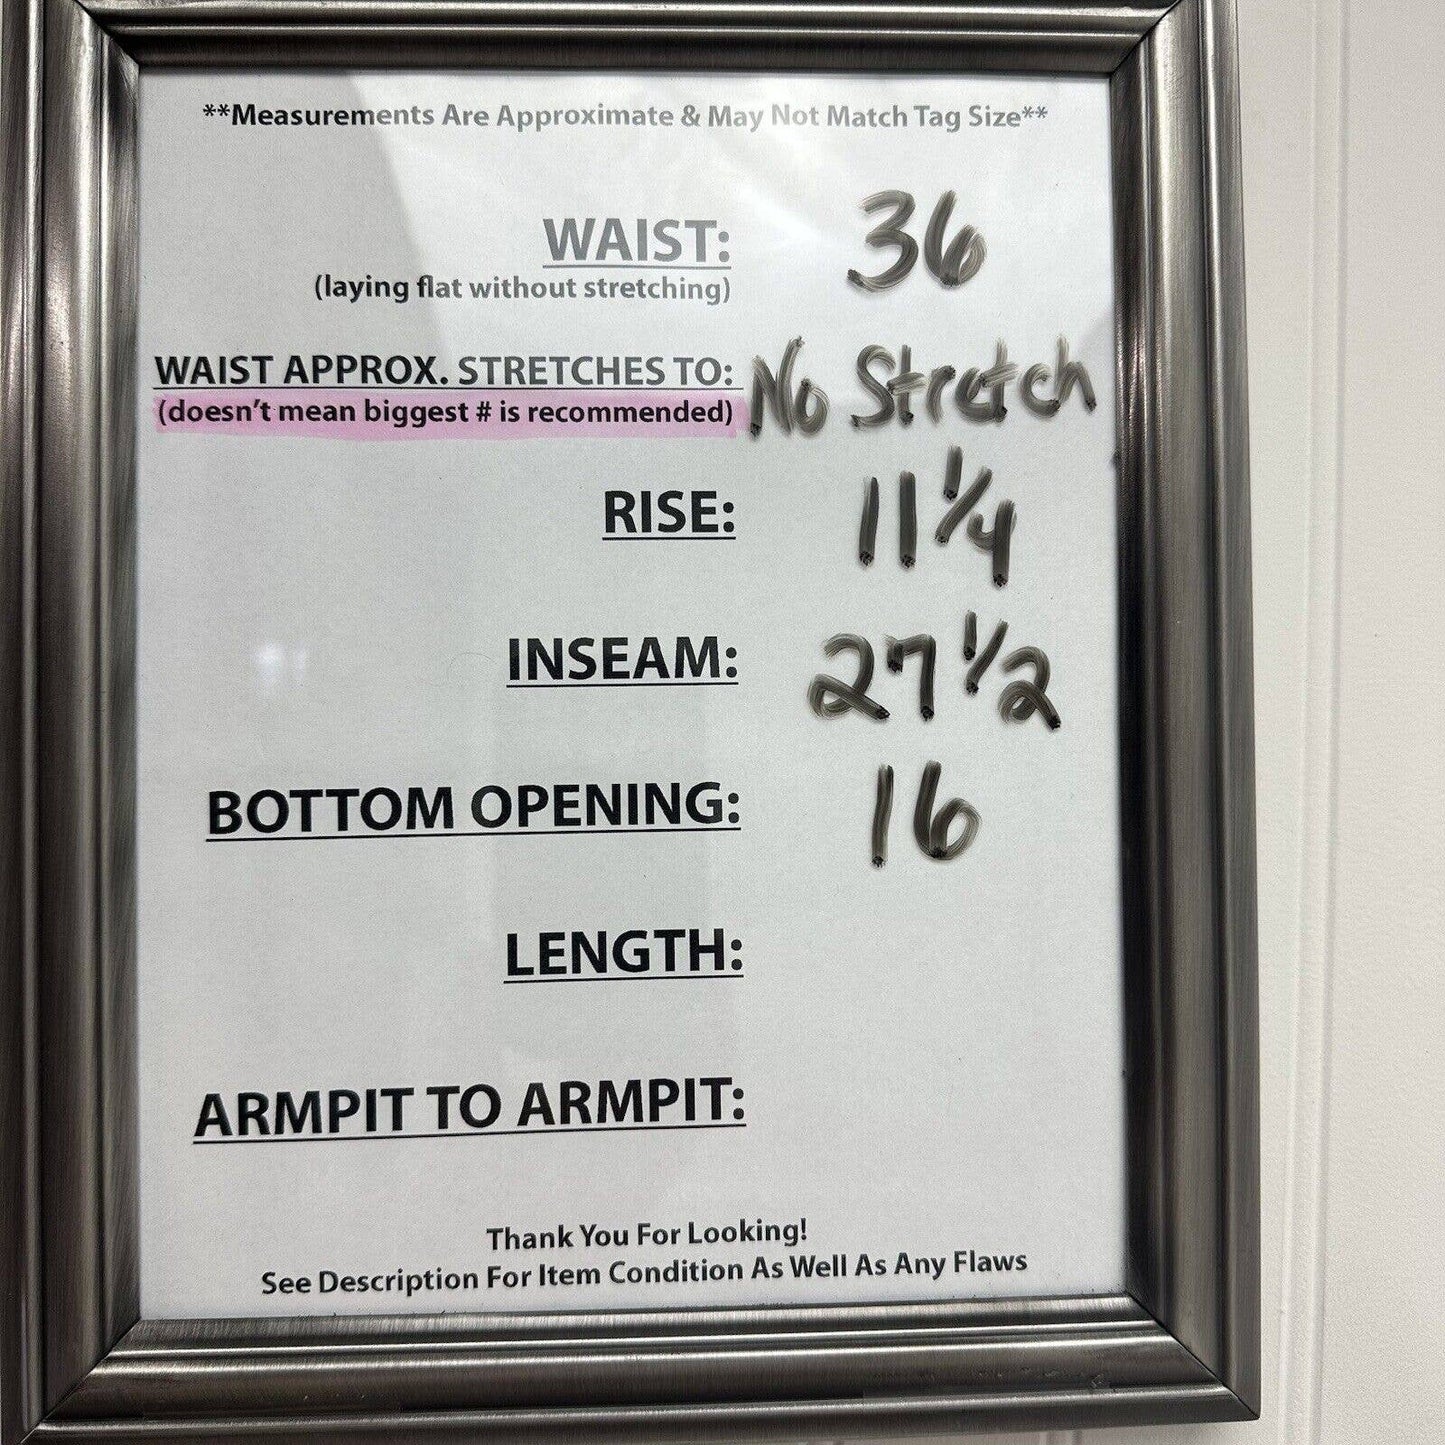 **Measurements Are Approximate & May Not Match Tag Size**
WAIST: 36
(laying flat without stretching)
WAIST APPROX. STRETCHES TO: No Stretch
(doesn't mean biggest # is recommended)
RISE: 11 1/4
INSEAM: 27 1/2
BOTTOM OPENING: 16
LENGTH:
ARMPIT TO ARMPIT:
Thank You For Looking!
See Description For Item Condition As Well As Any Flaws